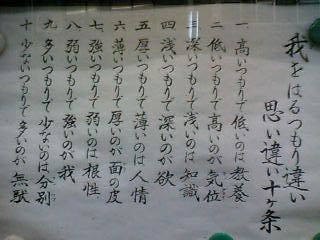 我をはるつもり違い
思い違い十ヶ条
一 高いつもりで低いのは教養
二 低いつもりで高いのが気位
三 深いつもりで浅いのは知識
四 浅いつもりで深いのが欲
五 厚いつもりで薄いのは人情
六 薄いつもりで厚いのが面の皮
七 強いつもりで弱いのは根性
八 弱いつもりで強いのが我
九 多いつもりで少ないのは分別
十 少ないつもりで多いのが無駄